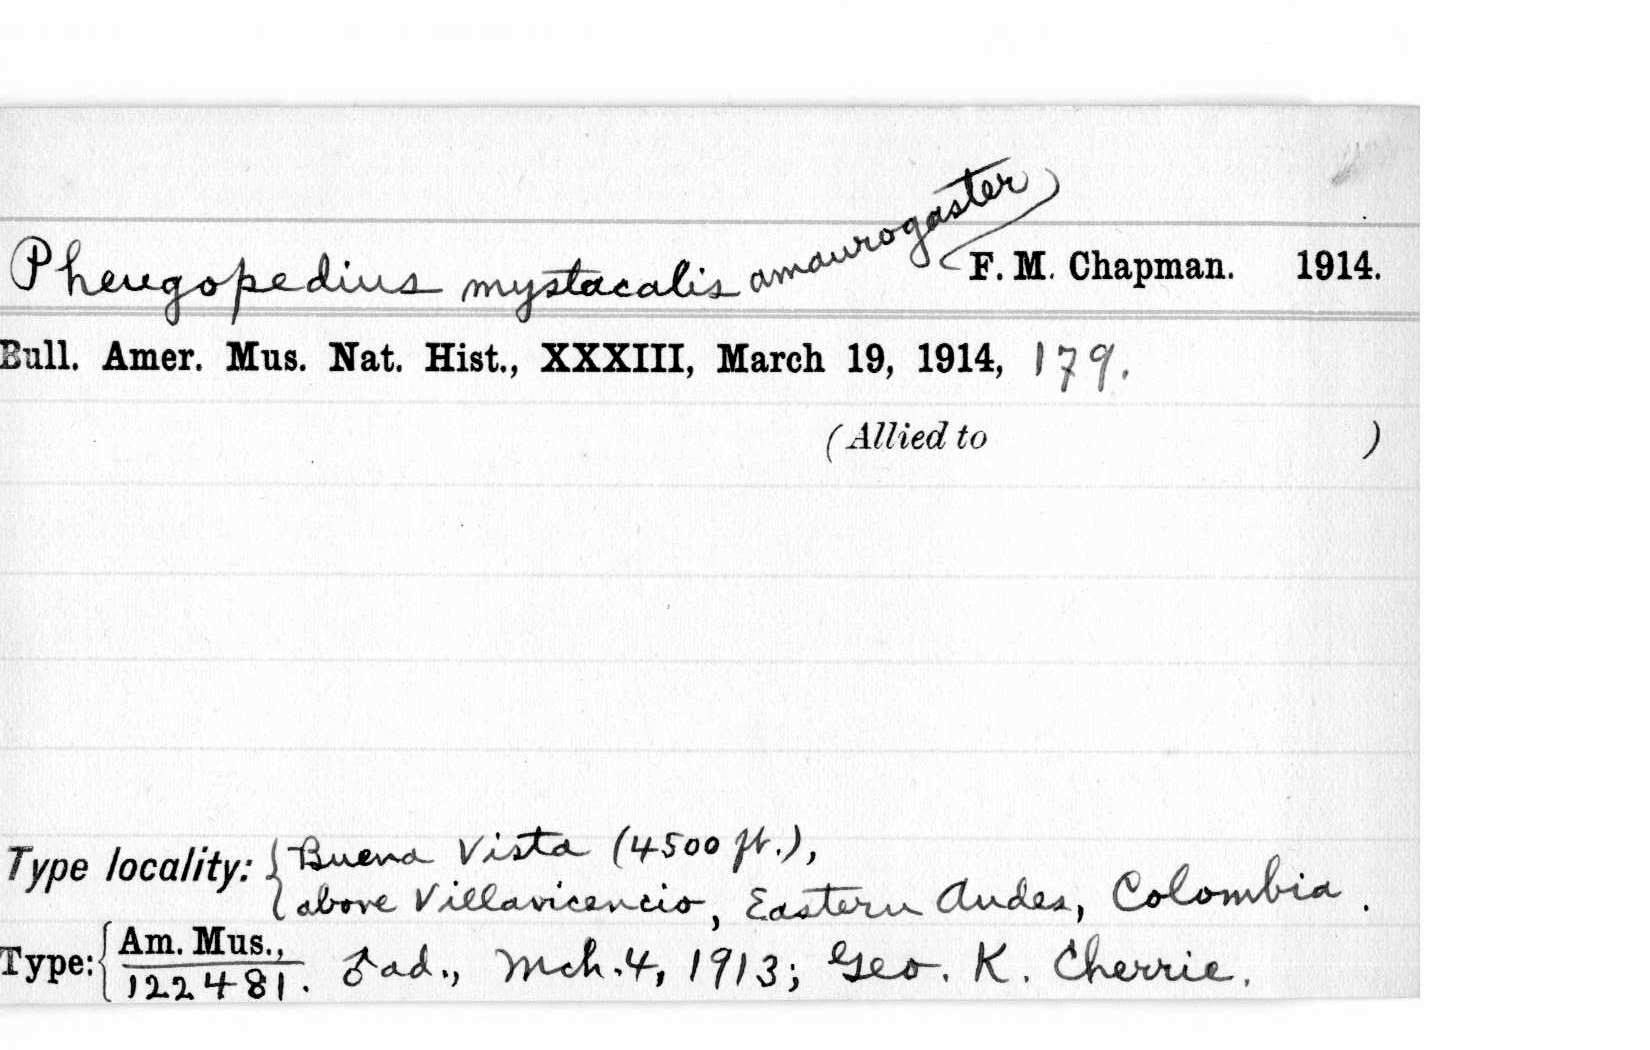 Pheugopedius mystacalis amaurogaster F. M. Chapman. 1914.
Bull. Amer. Mus. Nat. Hist., XXXIII, March 19, 1914, 179.
(Allied to )
Type locality: { Buena Vista (4500 ft.),
above Villavicencio, Eastern Andes, Colombia.
Type: { Am. Mus.,
122481. ♂ ad., Mch. 4, 1913; Geo. K. Cherrie.